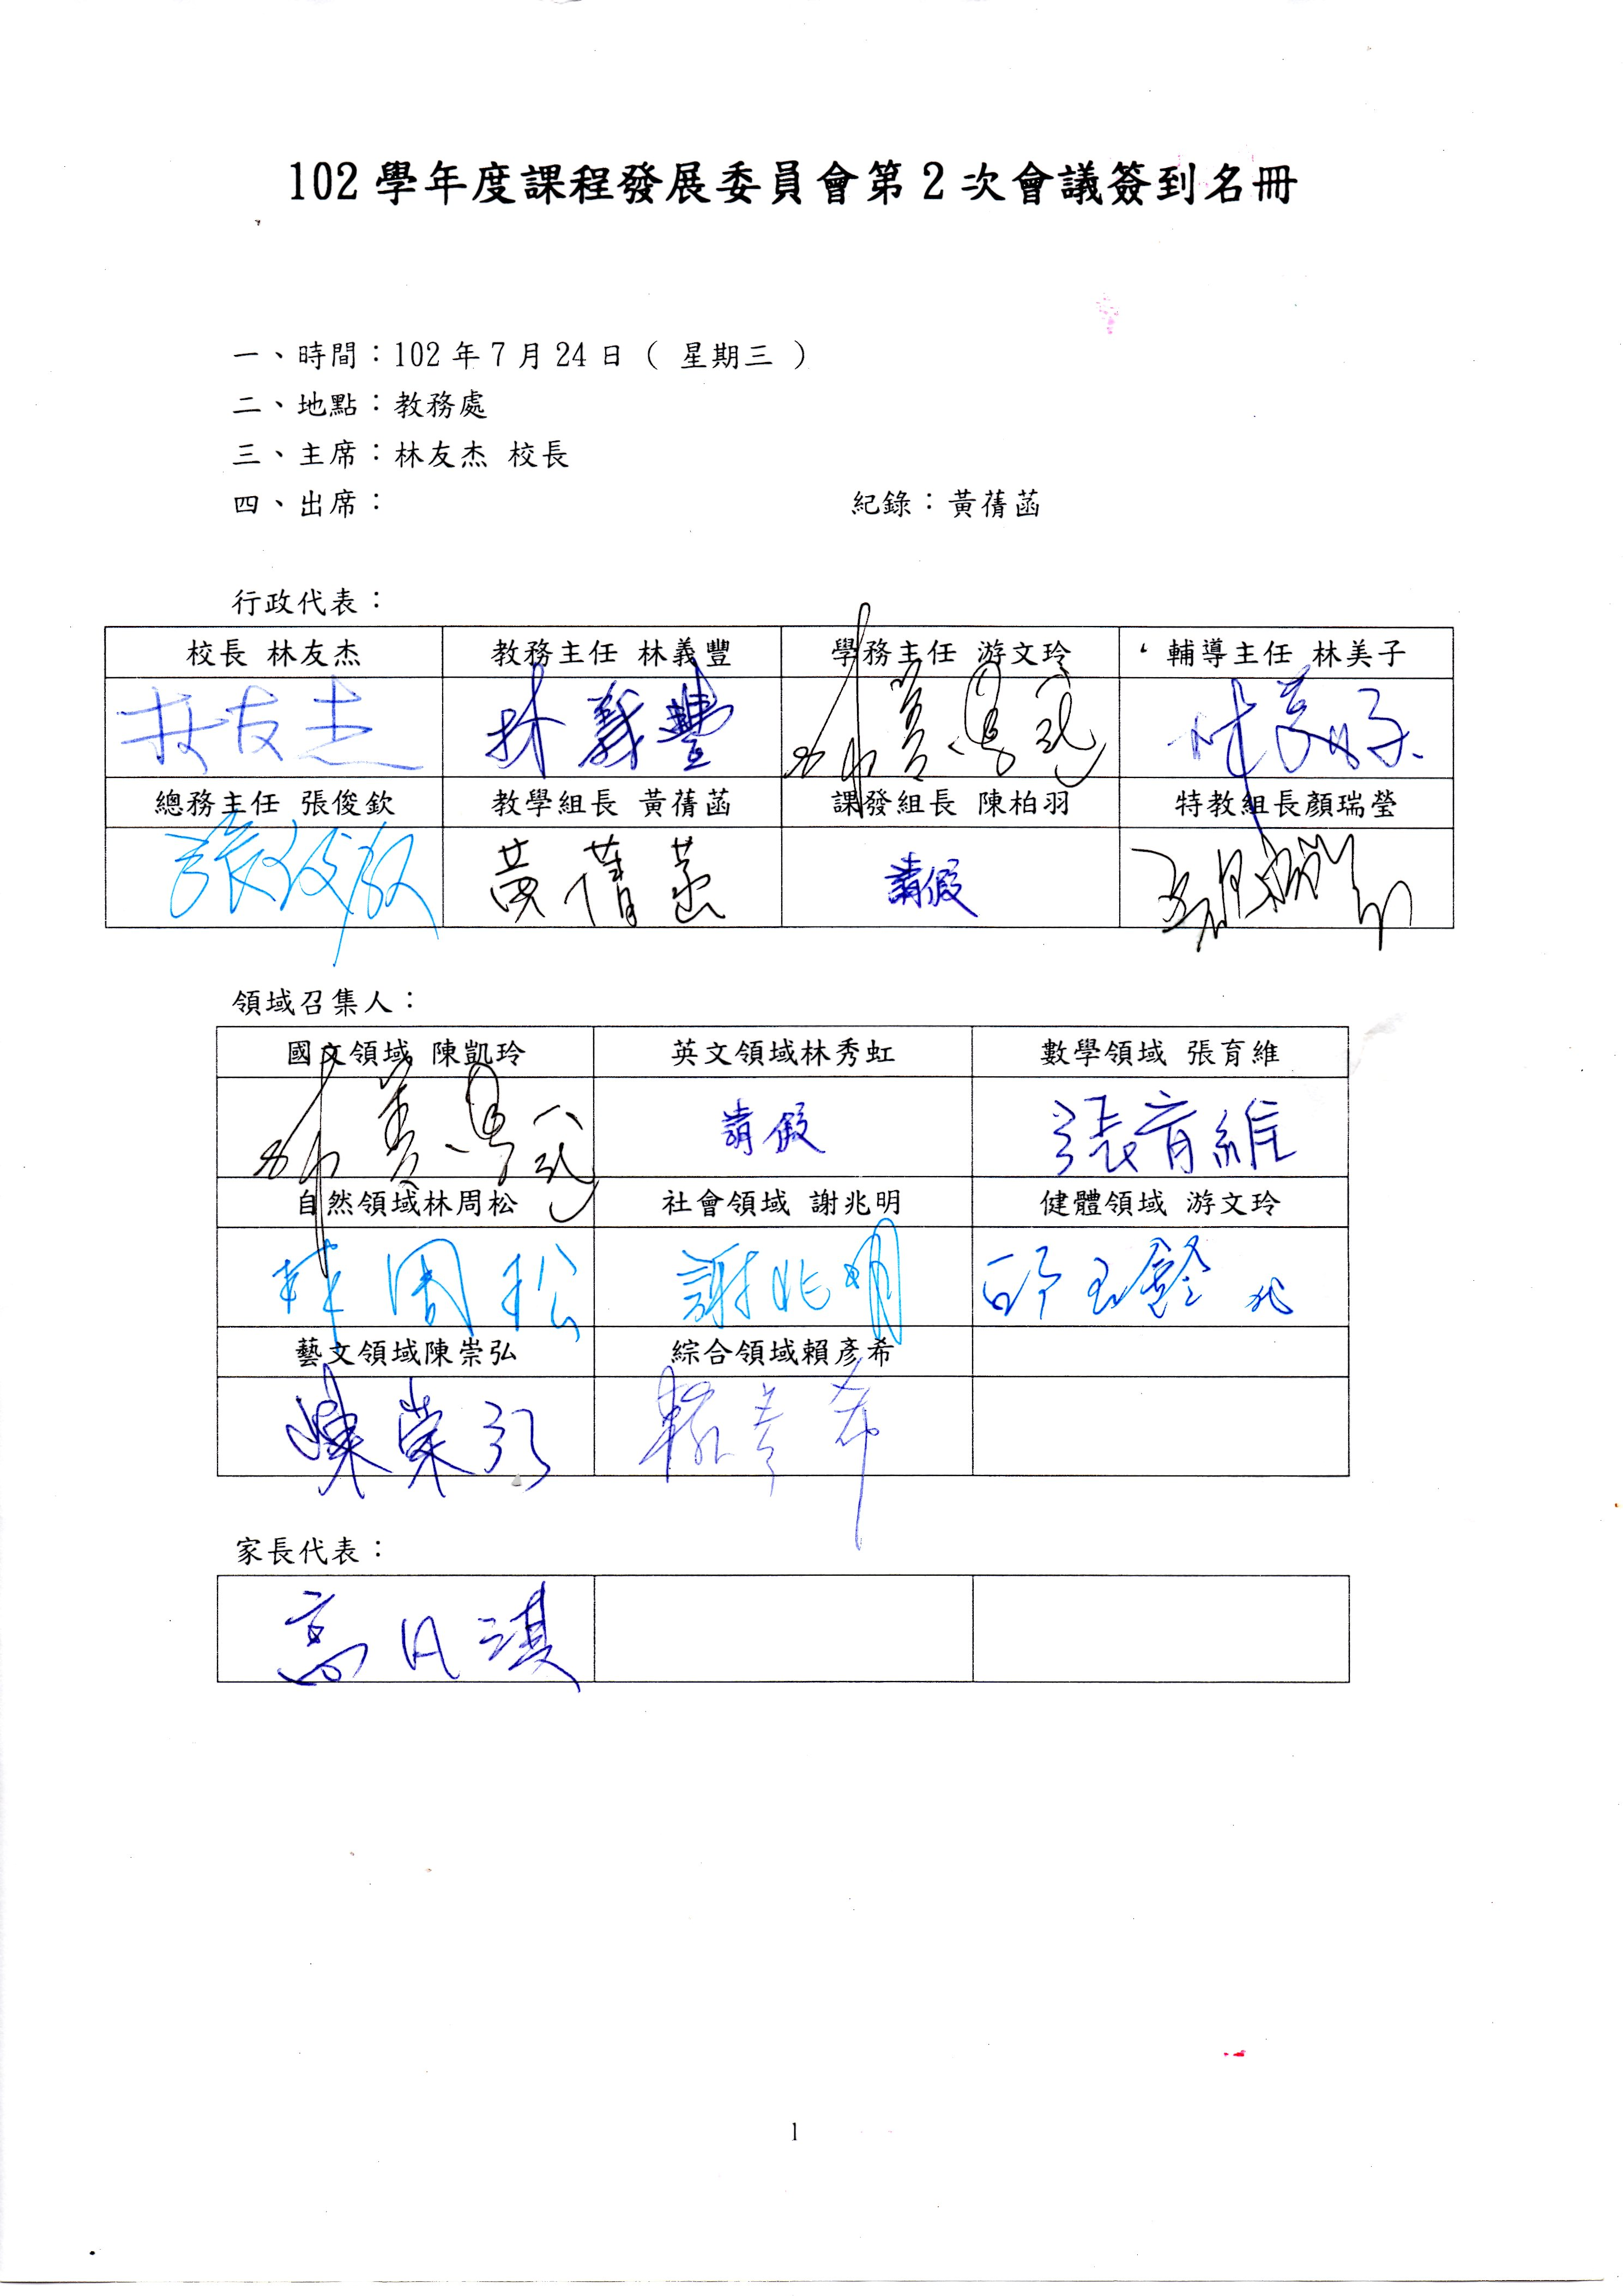 102 學年度課程發展委員會第 2 次會議簽到名冊
一、時間：102 年 7 月 24 日 （ 星期三 ）
二、地點：教務處
三、主席：林友杰 校長
四、出席： 紀錄：黃蒨菡
行政代表：
校長 林友杰 教務主任 林義豐 學務主任 游文玲 輔導主任 林美子
林友杰 林義豐 林美子
總務主任 張俊欽 教學組長 黃蒨菡 課發組長 陳柏羽 特教組長顏瑞瑩
張俊欽 黃蒨菡 請假
領域召集人：
國文領域 陳凱玲 英文領域林秀虹 數學領域 張育維
請假 張育維
自然領域林周松 社會領域 謝兆明 健體領域 游文玲
林周松 謝兆明 代
藝文領域陳崇弘 綜合領域賴彥希
陳崇弘 賴彥希
家長代表：
1